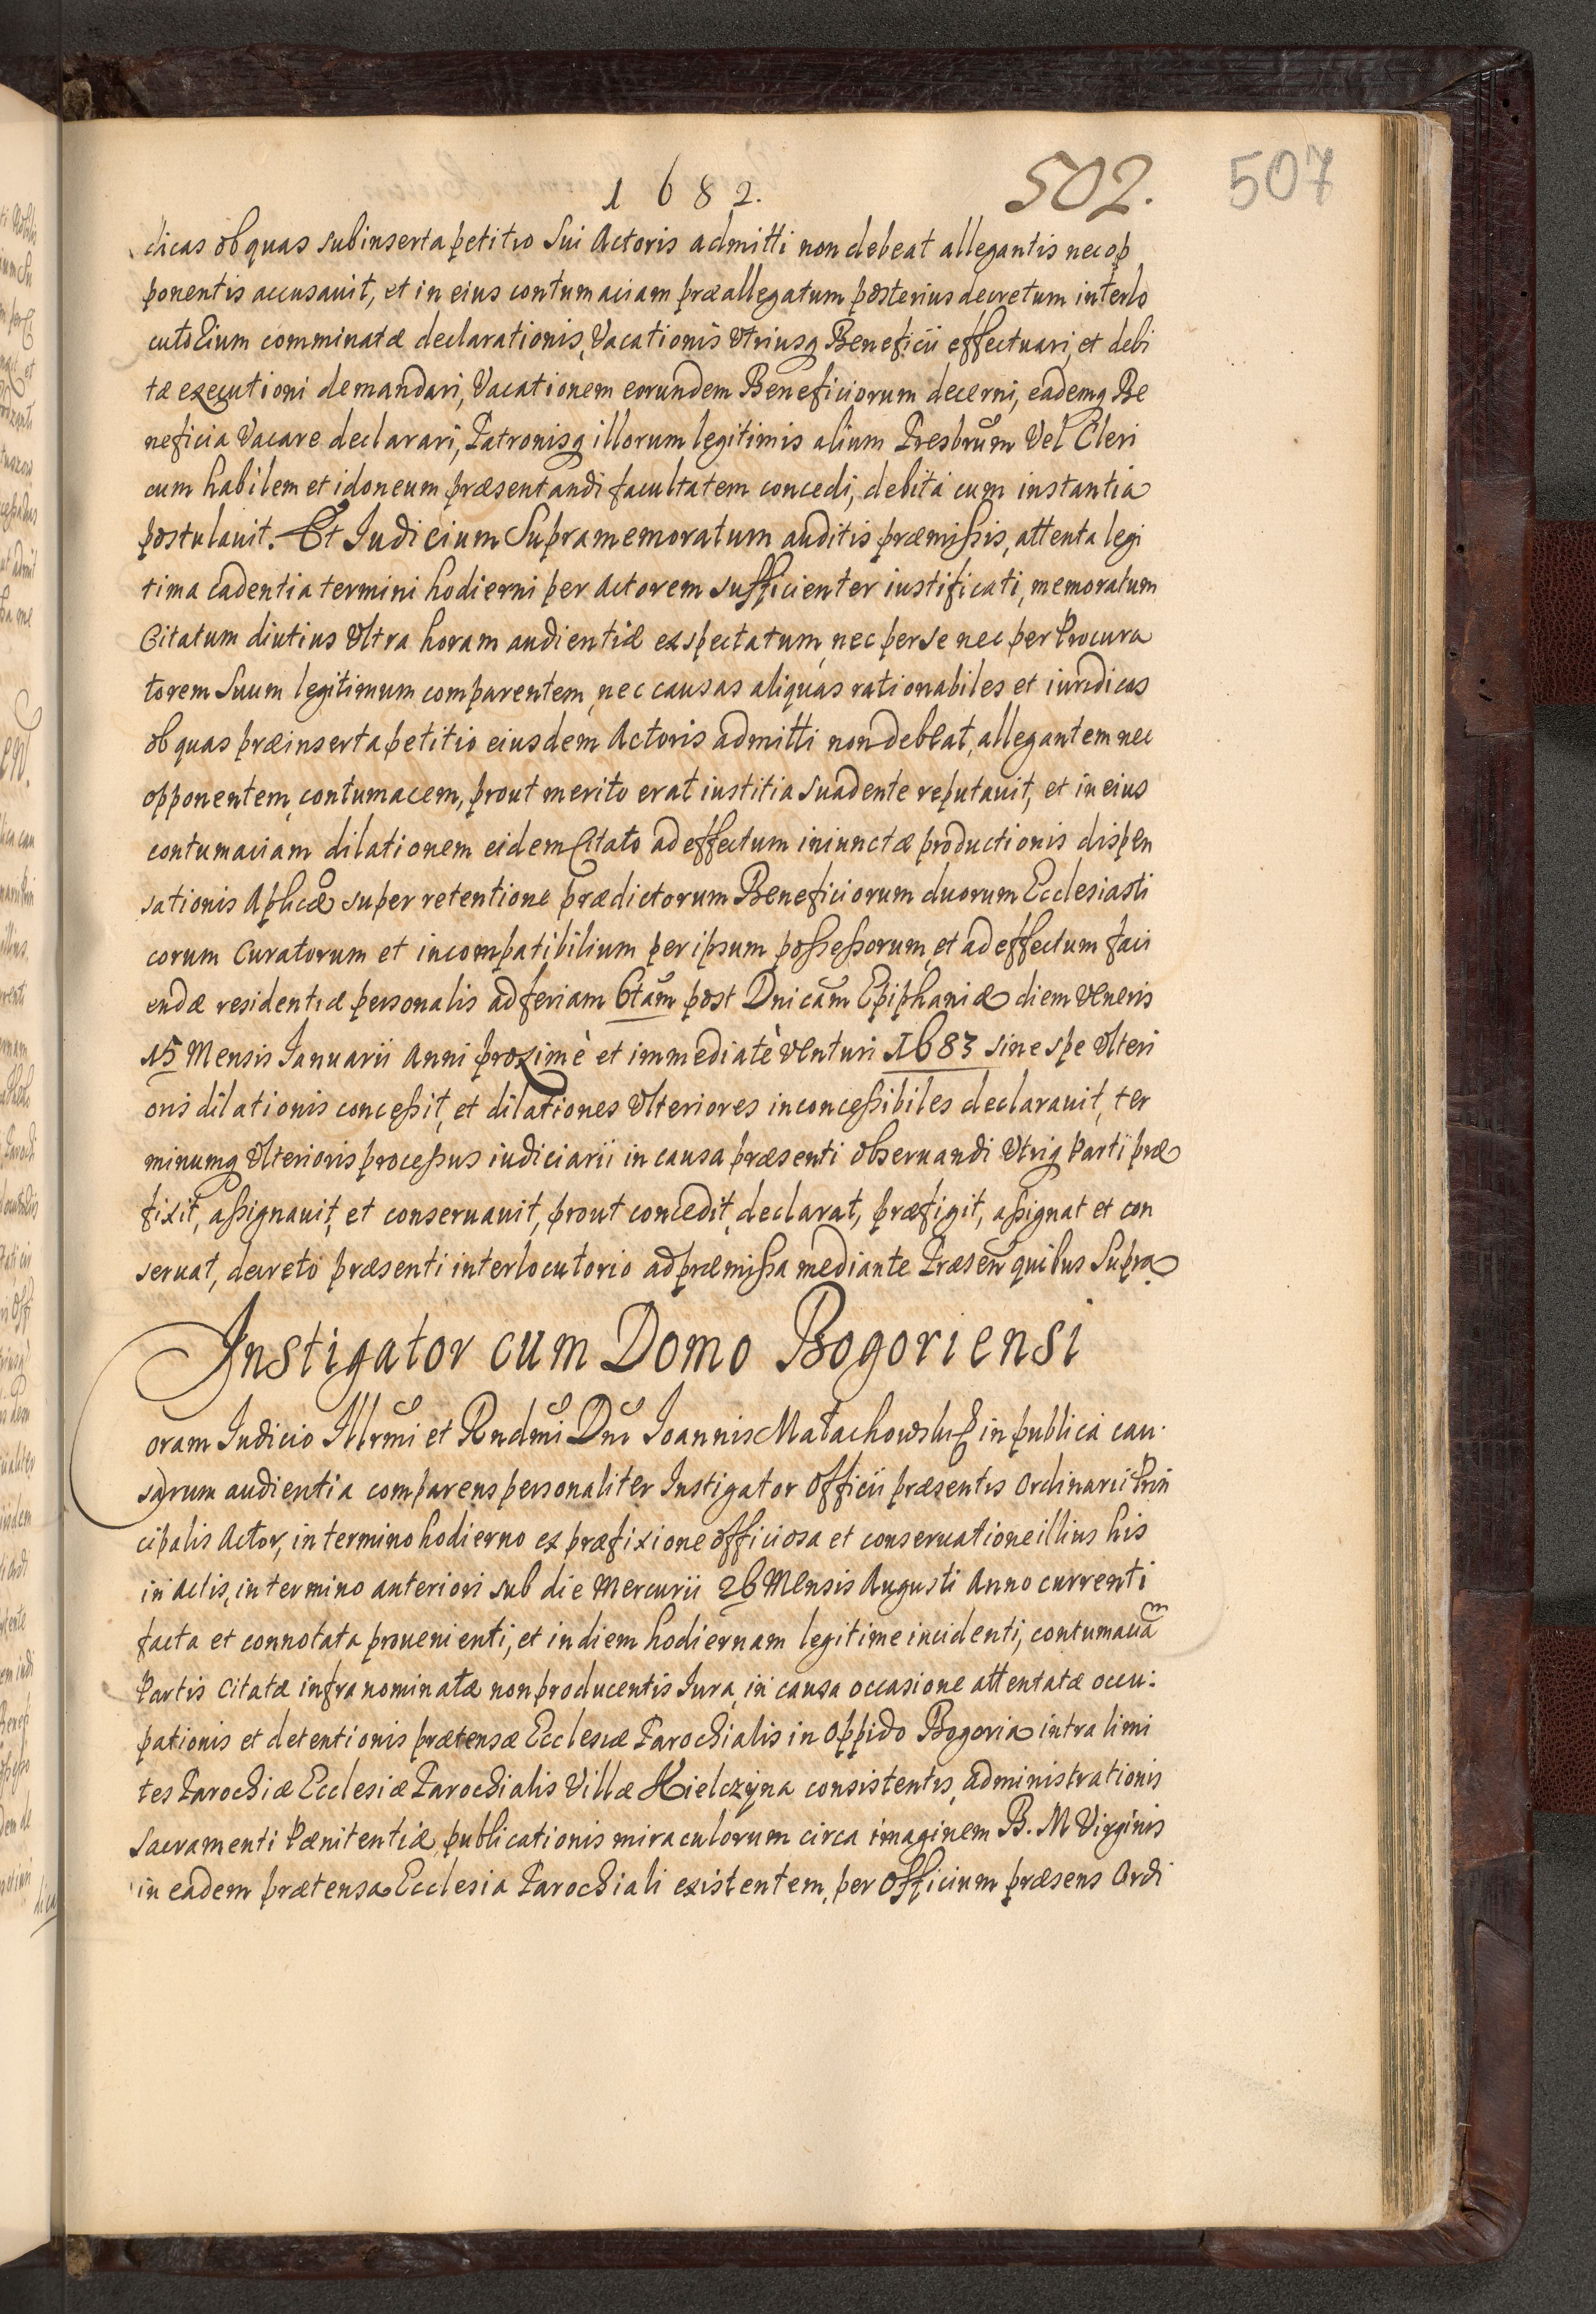 1682.
502.
507
dicas ob quas subinserta petitio Sui Actoris admitti non debeat allegantis nec op
ponentis accusauit, et in eius contumaciam præallegatum posterius decretum interlo
cutorium comminatæ declarationis, Vacationis Vtriusq Beneficii effectuari, et debi
tæ executioni demandari, Vacationem eorundem Beneficiorum decerni, eademq Be
neficia Vacare declarari, Patronisq illorum legitimis alium Presbrum Vel Cleri
cum habilem et idoneum præsentandi facultatem concedi, debita cum instantia
postulauit. Et Iudicium Supramemoratum auditis præmissis, attenta legi
tima Cadentia termini hodierni per Actorem sufficienter iustificati, memoratum
Citatum diutius Vltra horam audientiæ exspectatum, nec per se nec per Procura
torem Suum legitimum comparentem, nec causas aliquas rationabiles et iuridicas
ob quas præinserta petitio eiusdem Actoris admitti non debeat, allegantem nec
opponentem, contumacem, prout merito erat iustitia suadente reputauit, et in eius
contumaciam dilationem eidem Citato ad effectum iniunctæ productionis dispen
sationis Aplicæ super retentione prædictorum Beneficiorum duorum Ecclesiasti
corum Curatorum et incompatibilium per ipsum possessorum, et ad effectum faci
endæ residentiæ personalis ad feriam 6tam post Dnicam Epiphaniæ diem Veneris
15 Mensis Ianuarii Anni proximè et immediatè Venturi 1683 sine spe Vlteri
oris dilationis concessit, et dilationes Vlteriores inconcessibiles declarauit, ter
minumq Vlterioris processus iudiciarii in causa præsenti obseruandi Vtriq Parti præ
fixit, assignauit, et conseruauit, prout concedit, declarat, præfigit, assignat et con
seruat, decreto præsenti interlocutorio ad præmissa mediante Præsen quibus Supra
Instigator cum Domo Bogoriensi
Coram Iudicio Illrmi et Rndmi Dni Ioannis Małachowski in publica cau
sarum audientia comparens personaliter Instigator Officii præsentis Ordinarii Prin
cipalis Actor, in termino hodierno ex præfixione officiosa et conseruatione illius his
in Actis, in termino anteriori sub die Mercurii 26 Mensis Augusti Anno currenti
facta et connotata prouenienti, et in diem hodiernam legitime incidenti, contumaciam
Partis Citatæ infranominatæ non producentis Iura, in causa occasione attentatæ occu:
pationis et detentionis prætensæ Ecclesiæ Parochialis in Oppido Bogoria intra limi
tes Parochiæ Ecclesiæ Parochialis Villæ Kielczyna consistentis, administrationis
Sacramenti Pænitentiæ, publicationis miraculorum circa imaginem B. M Virginis
in eadem prætensa Ecclesia Parochiali existentem, per Officium præsens Ordi